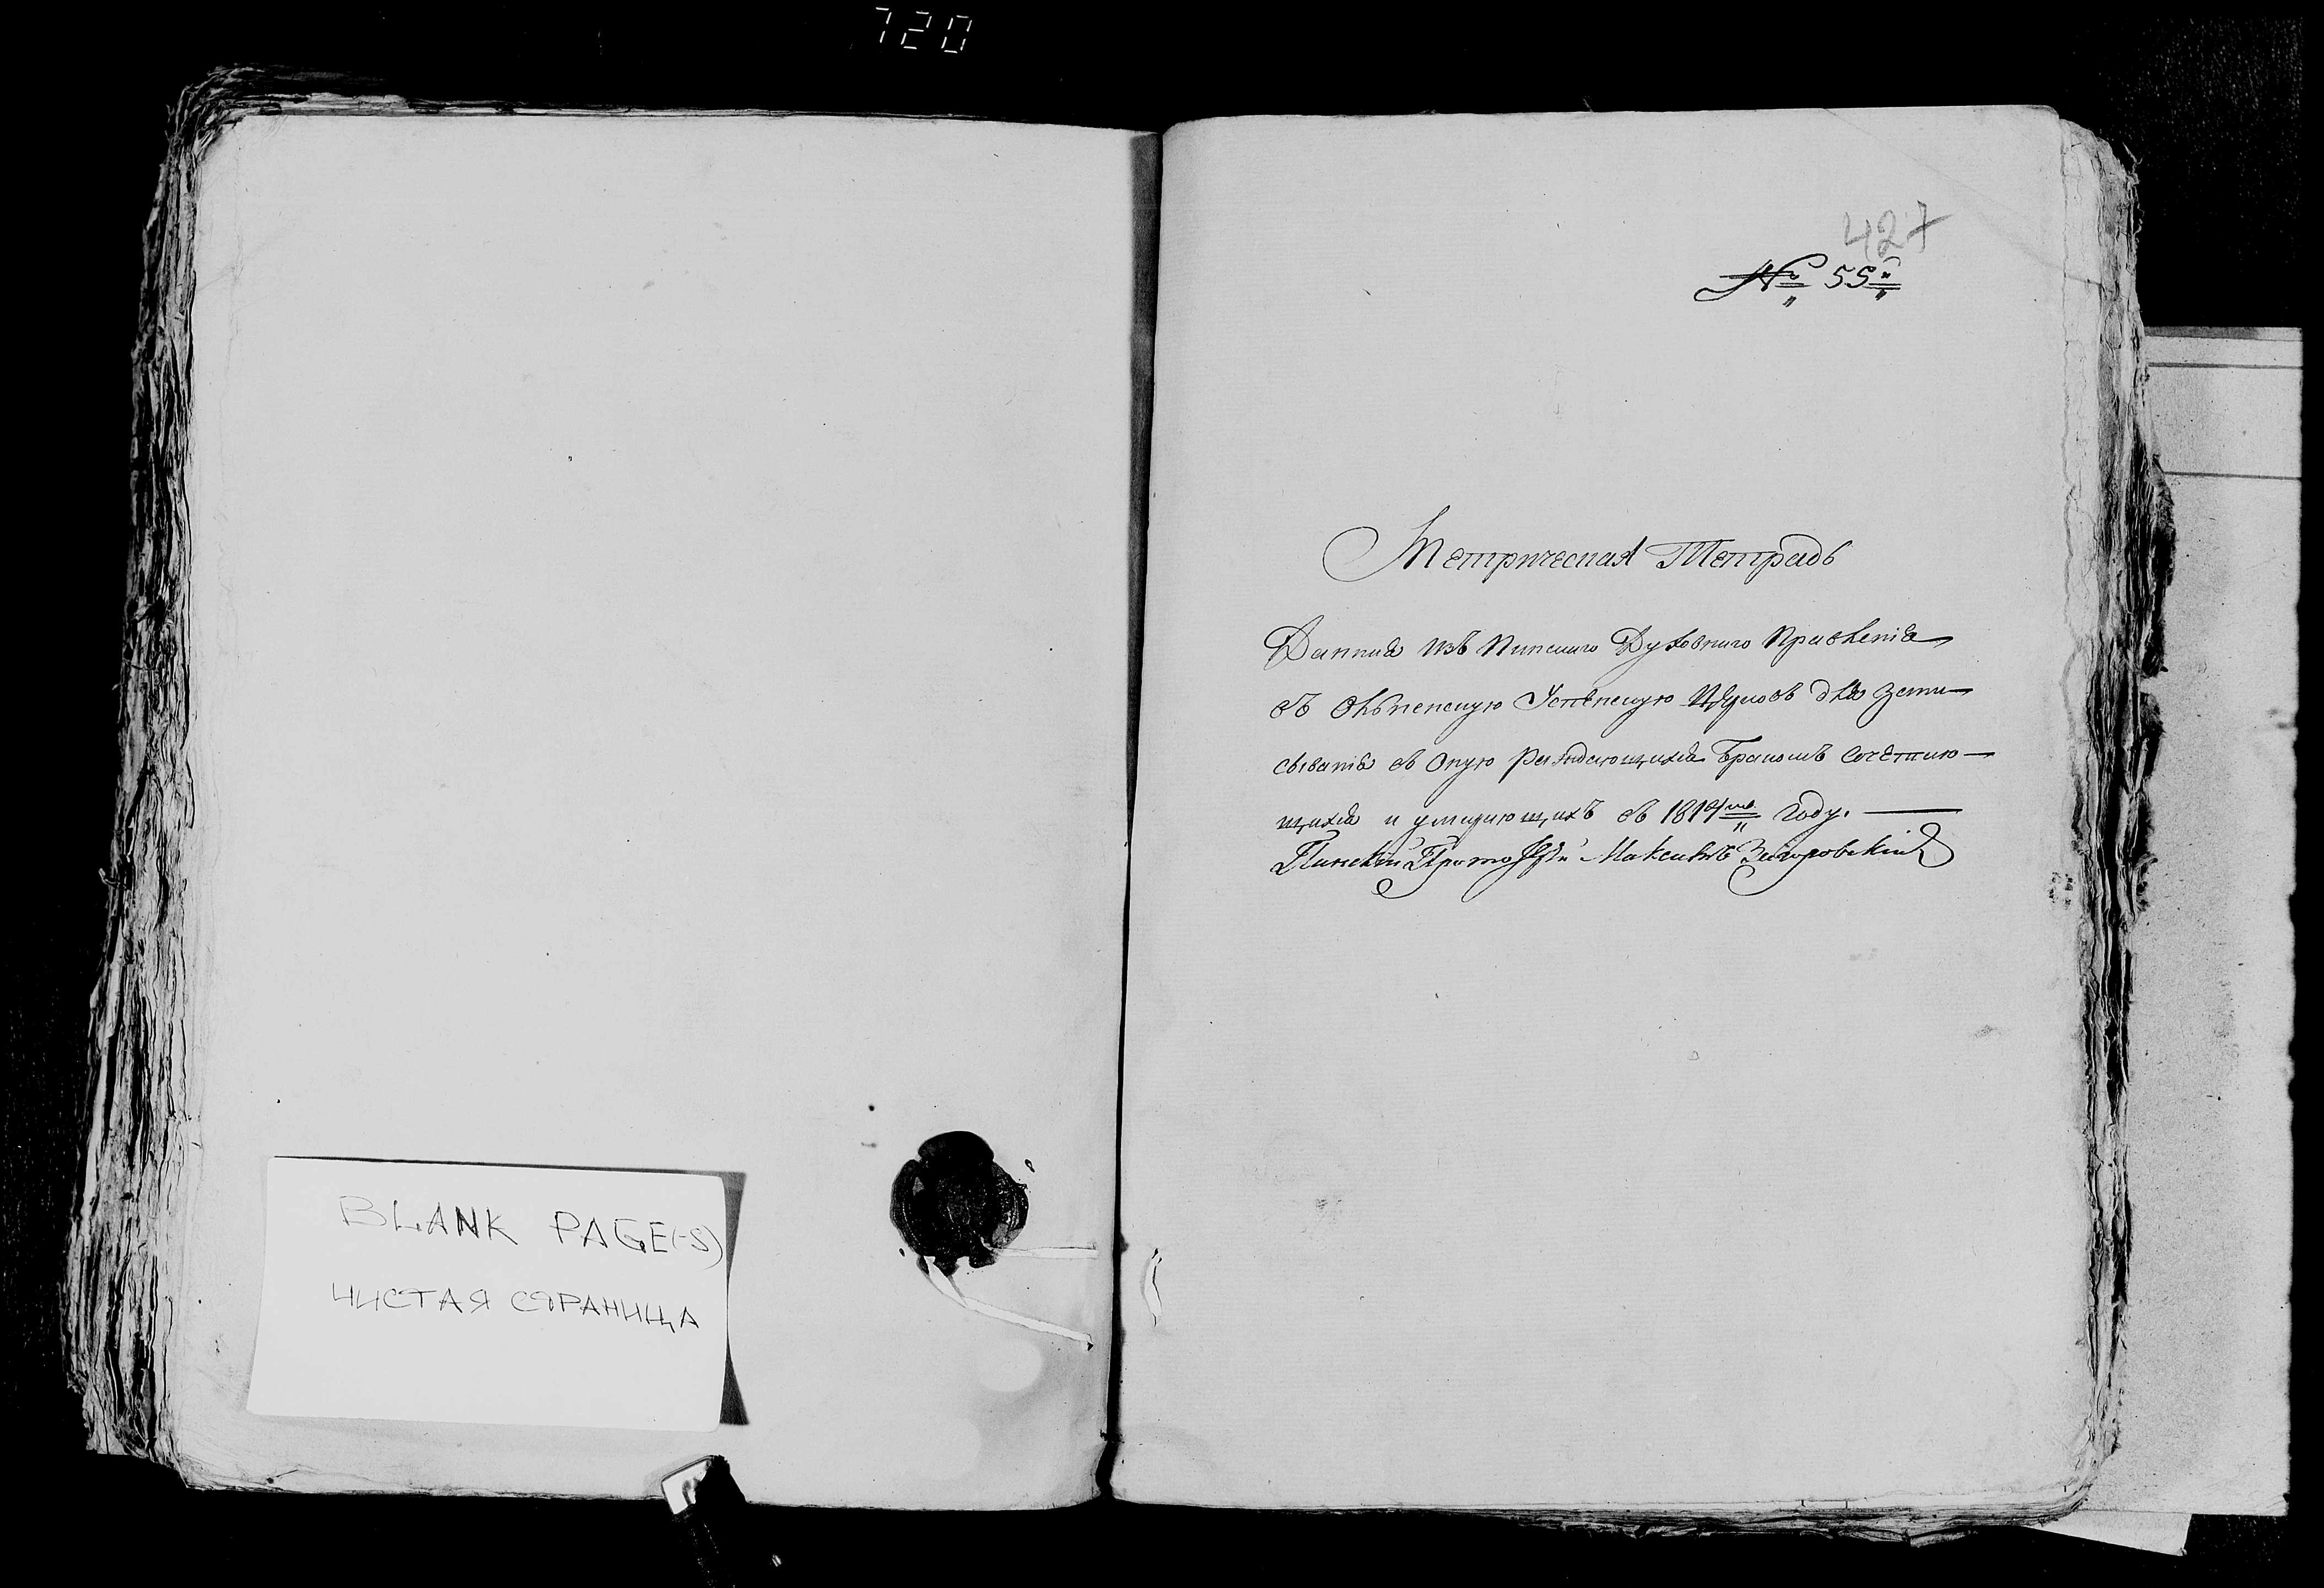 720
BLANK PAGE(-S)
ЧИСТАЯ СТРАНИЦА
427
№ 55
Метрическая Тетрадь
Данная изъ Пинскаго Духовнаго Правленія
въ Успенскую Церковь для запи-
сыванія въ оную раждающихся Бракомъ сочетаю-
щихся и умирающихъ въ году.
Пинскій Максимъ